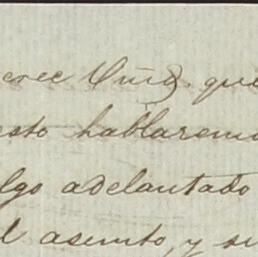 cree Vmd. que
esto hablaremo
algo adelantado
el asunto, y si